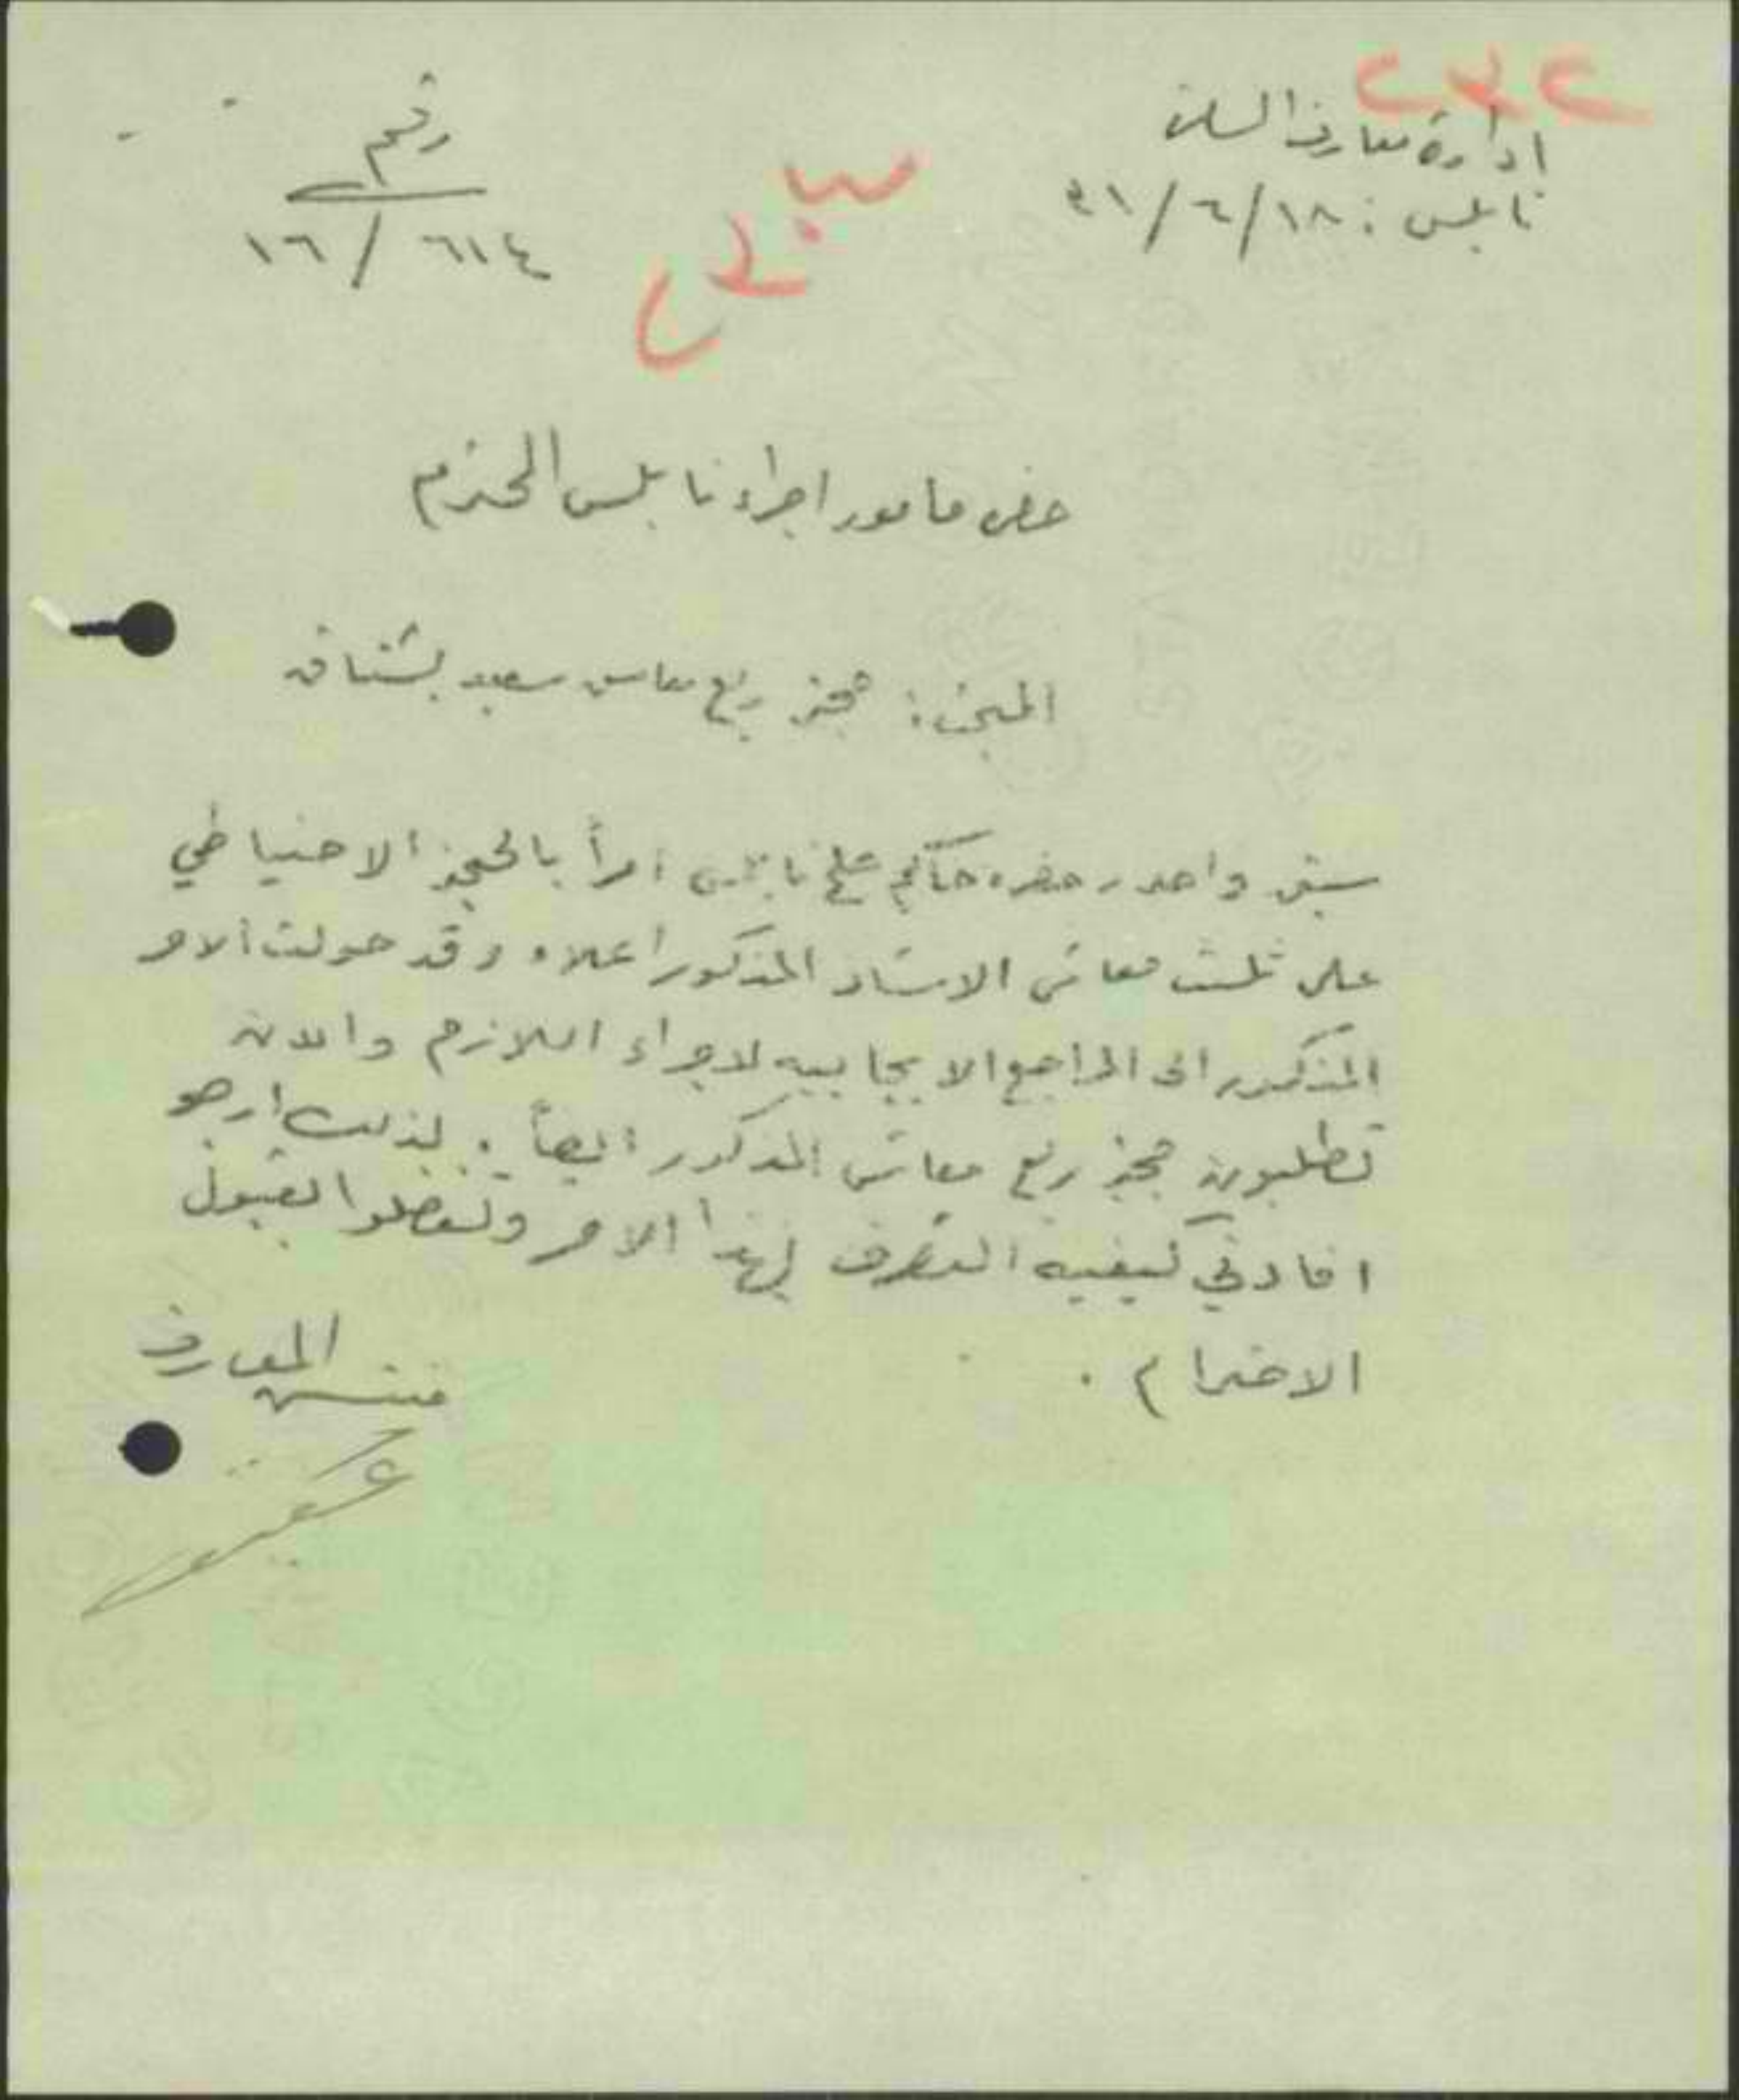 ادارة معارف السامرة
نابلس : ١٨/٦/٤١
رقم
٦١٤ / ١٦
حضرة مامور اجراء نابلس المحترم
المبحث : حجز ربع معاش سعيد بشناق
سبق واصدر حضرة حاكم صلح نابلس امراً بالحجز الاحتياطي
على ثلث معاش الاستاذ المذكور اعلاه وقد حولت الامر
المذكور الى المراجع الايجابيه لاجراء اللازم والان
تطلبون حجز ربع معاش المذكور ايضاً . لذلك ارجو
افادتي كيفيه التصرف بهذا الامر وتفضلوا بقبول
الاحترام .
مفتش المعارف